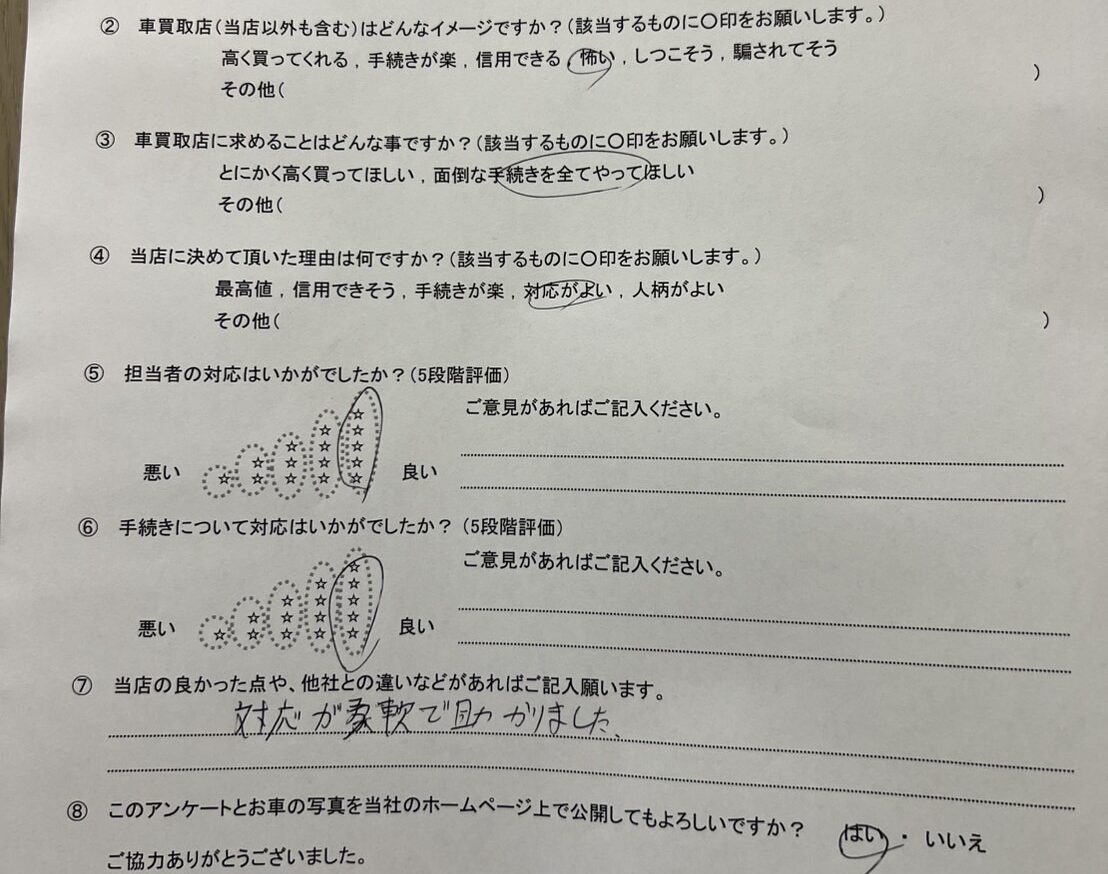 ② 車買取店(当店以外も含む)はどんなイメージですか?(該当するものに〇印をお願いします。)
高く買ってくれる , 手続きが楽 , 信用できる , 怖い , しつこそう , 騙されてそう
その他( )
③ 車買取店に求めることはどんな事ですか?(該当するものに〇印をお願いします。)
とにかく高く買ってほしい , 面倒な手続きを全てやってほしい
その他( )
④ 当店に決めて頂いた理由は何ですか?(該当するものに〇印をお願いします。)
最高値 , 信用できそう , 手続きが楽 , 対応がよい , 人柄がよい
その他( )
⑤ 担当者の対応はいかがでしたか?(5段階評価)
ご意見があればご記入ください。
悪い ☆ ☆☆ ☆☆☆ ☆☆☆☆ ☆☆☆☆☆ 良い
⑥ 手続きについて対応はいかがでしたか? (5段階評価)
ご意見があればご記入ください。
悪い ☆ ☆☆ ☆☆☆ ☆☆☆☆ ☆☆☆☆☆ 良い
⑦ 当店の良かった点や、他社との違いなどがあればご記入願います。
対応が柔軟で助かりました、
⑧ このアンケートとお車の写真を当社のホームページ上で公開してもよろしいですか? はい ・ いいえ
ご協力ありがとうございました。